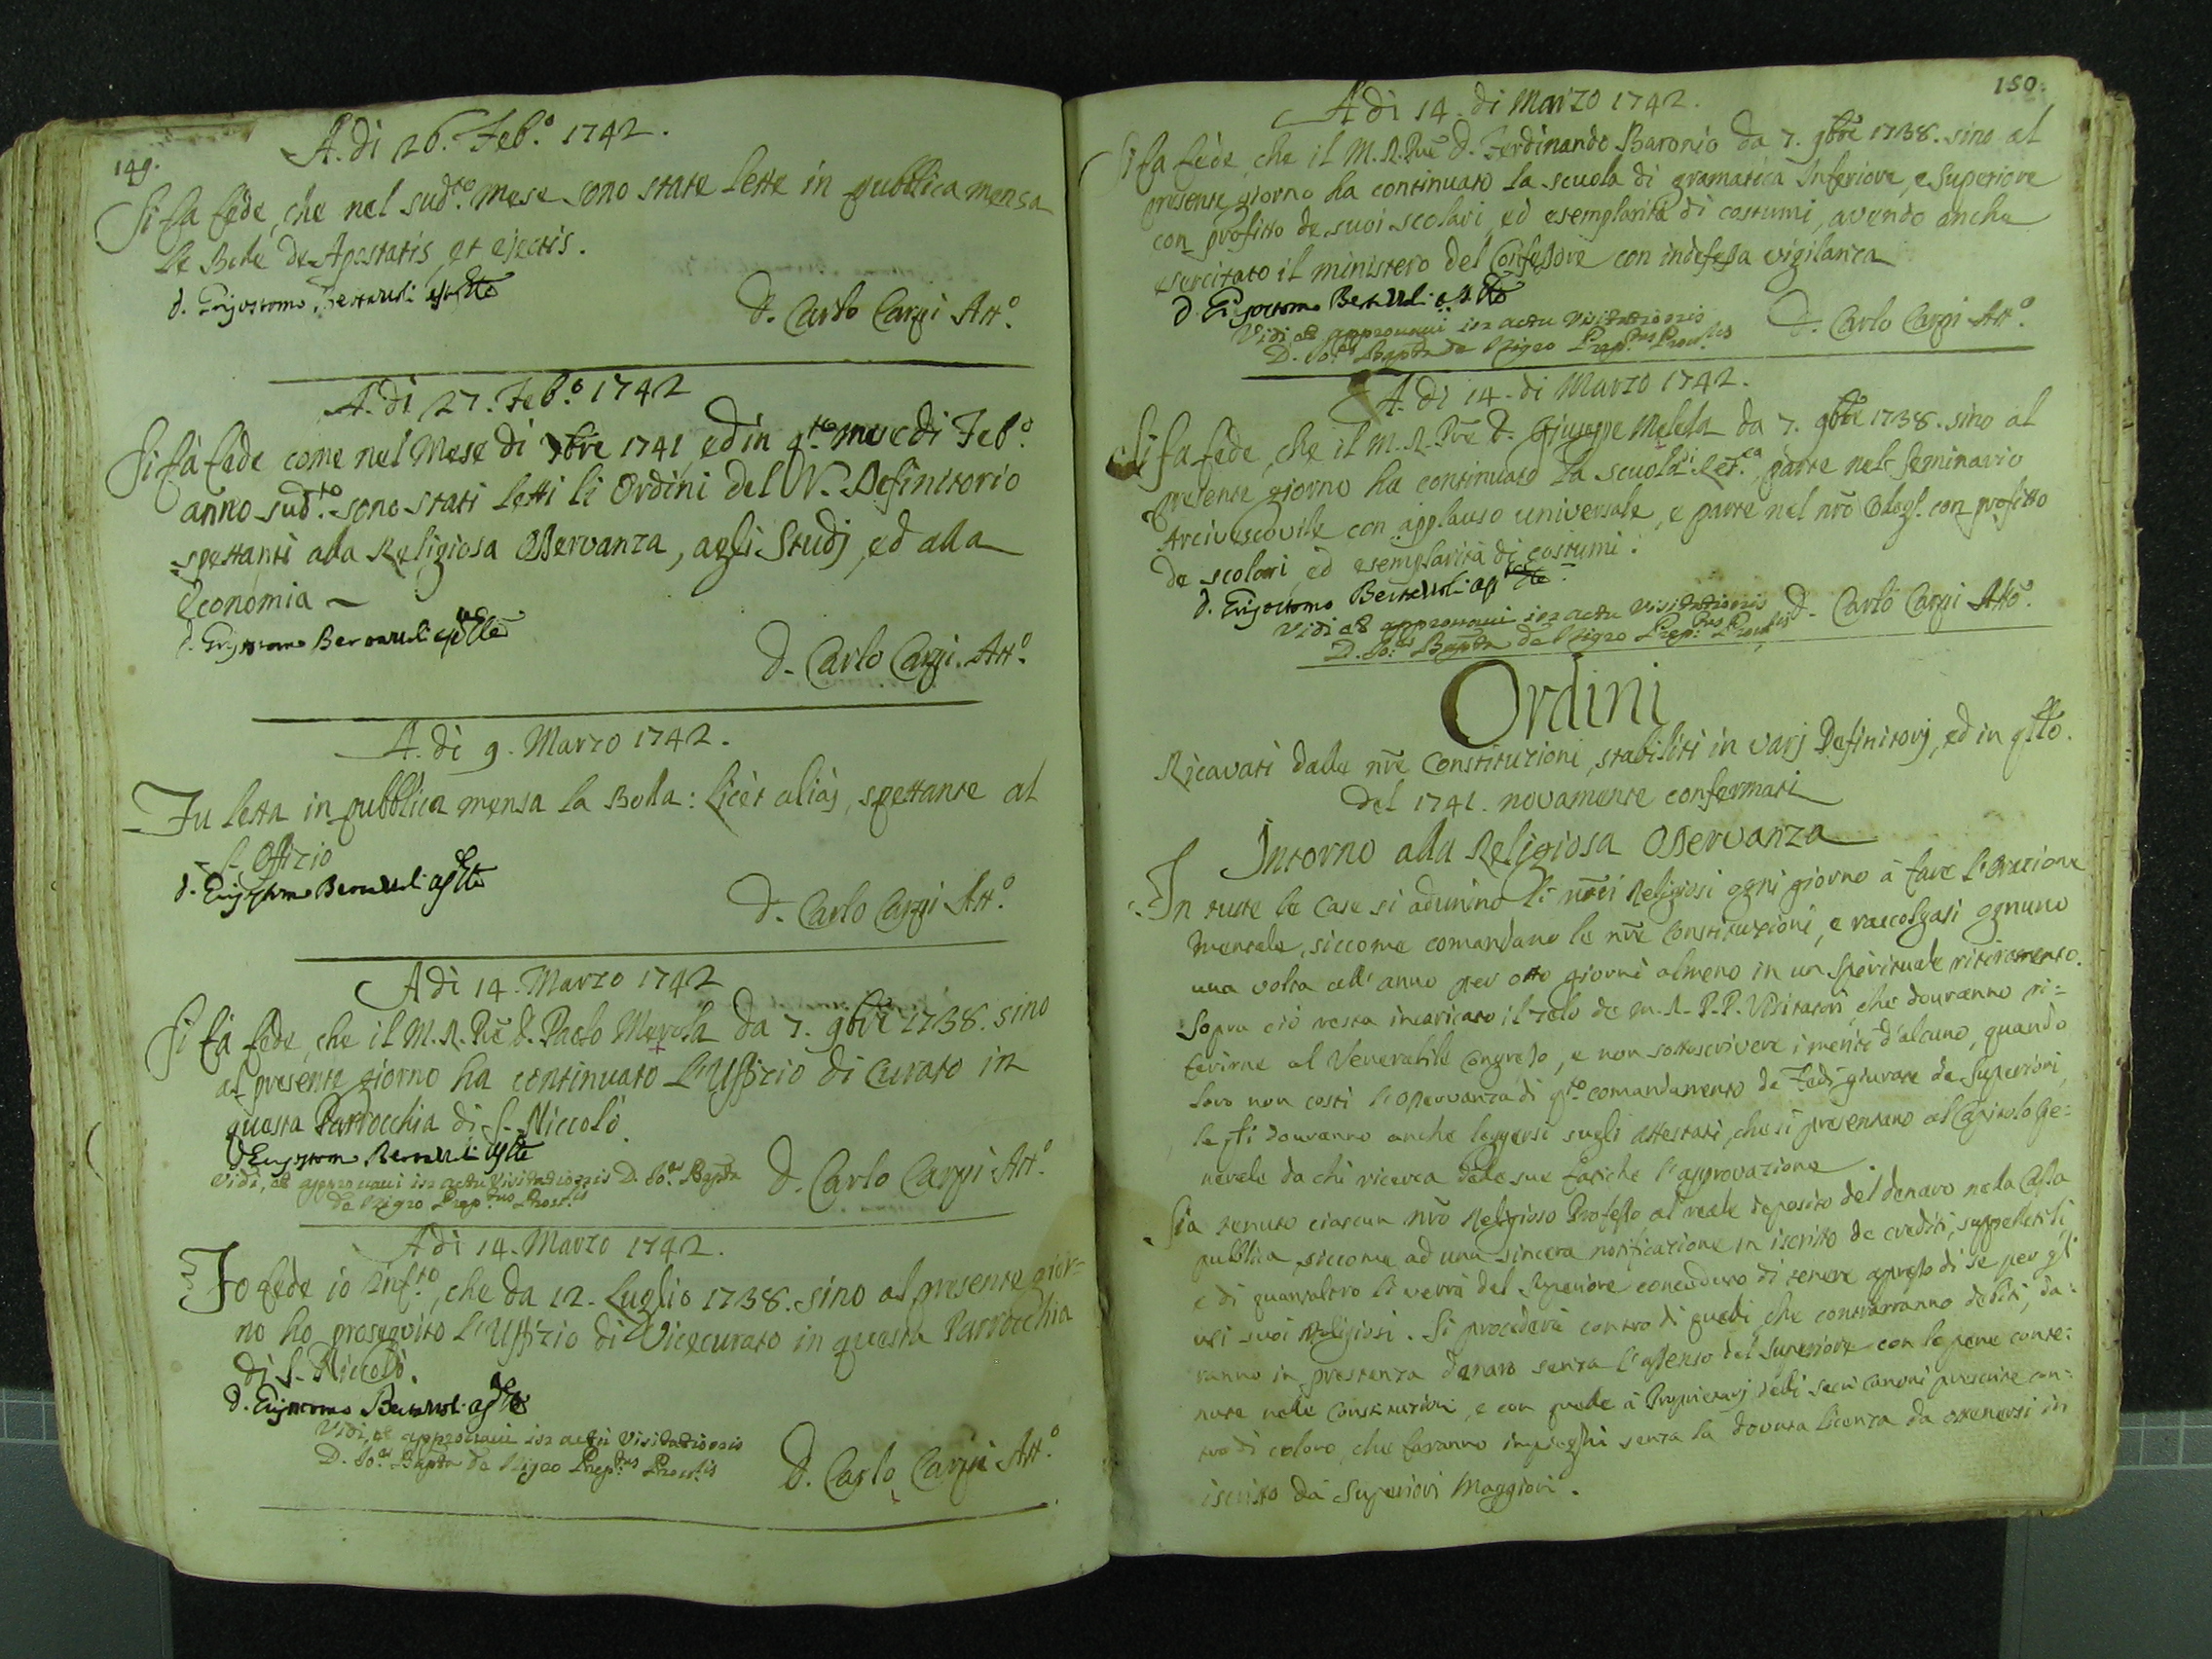 149.
A. di 26. Feb.º 1742.
Si fa fede, che nel sud.to mese sono state lette in pubblica mensa
le Bolle de Apostatis, et ejectis.
D. Carlo Carpi Att.º
A. di 27. Feb.º 1742
Si fà fede come nel Mese di Xbre 1741, ed in q.to mese di Feb.º
anno sud.to sono stati letti li Ordini del V. Definitorio
spettanti alla Religiosa Osservanza, agli Studj, ed alla
Economia
D. Carlo Carpi. Att.º
A. di 9. Marzo 1742.
Fu letta in pubblica mensa la Bolla: Licèt aliàs, spettante al
S. Offizio
D. Carlo Carpi Att.º
A di 14. Marzo 1742
Si fà fede, che il M. R. Pre D. Paolo Merola da 7. 9bre 1738. sino
al presente giorno ha continuato l'Uffizio di Curato in
questa Parrocchia di S. Niccolò.
Vidi, et approbavi in actu Visitationis D. Jo.es Bapta
de Nigro Prep.tus Prov.lis
D. Carlo Carpi Att.º
A di 14. Marzo 1742.
Fo fede io Inf.to, che da 12. Luglio 1738. sino al presente gior-
no ho proseguito l'Uffizio di Vicecurato in questa Parrocchia
di S. Niccolò.
Vidi, et approbavi in actu Visitationis
D. Jo.es Bapta de Nigro Prep.tus Prov.lis
D. Carlo Carpi Att.º
150.
A di 14. di Marzo 1742.
Si fa fede, che il M. R. Pre D. Ferdinando Baronio da 7. 9bre 1738. sino al
presente giorno ha continuato la scuola di gramatica Inferiore, e Superiore
con profitto de suoi scolari, ed esemplarità di costumi, avendo anche
esercitato il ministero del Confessore con indefessa vigilanza
Vidi, et approbavi in actu Visitationis
D. Jo.es Bapta de Nigro Prep.tus Prov.lis
D. Carlo Carpi Att.º
A. di 14. di Marzo 1742.
Si fa fede, che il M. R. Pre D. Giuseppe Melella da 7. 9bre 1738. sino al
presente giorno ha continuato la scuola di Ret.ca, parte nel Seminario
Arcivescovile con applauso universale, e parte nel nrõ Colleg.º con profitto
de scolari, ed esemplarità di costumi.
Vidi et approbavi in actu Visitationis
D. Jo.es Bapta de Nigro Prep.tus Prov.lis
D. Carlo Carpi Att.º
Ordini
Ricavati dalle nrẽ Constituzioni, stabiliti in varj Definitorj, ed in q.llo
del 1741. novamente confermati
Intorno alla Religiosa Osservanza
In tutte le Case si adunino li nrĩ Religiosi ogni giorno à fare l'Orazione
mentale, siccome comandano le nrẽ Constituzioni, e raccolgasi ognuno
una volta all'anno per otto giorni almeno in un Spirituale ritiramento.
Sopra ciò resta incaricato il zelo de M. R. P. P. Visitatori, che dovranno ri=
ferirne al Venerabile Congresso, e non sottoscrivere i meriti d'alcuno, quando
loro non costi l'Osservanza di q.to comandamento da Fedi giurate de Superiori,
le q.li dovranno anche leggersi sugli attestati, che si presentano al Capitolo Ge=
nerale da chi ricerca delle sue fatiche l'approvazione
Sia tenuto ciascun nrõ Religioso Professo al reale deposito del denaro nella Cassa
pubblica, siccome ad una sincera notificazione in iscritto de crediti, suppellettili
e di quant'altro li verrà dal Superiore conceduto di tenere appresso di se per gl'
usi suoi Religiosi. Si procederà contro di quelli, che contrarranno debiti, da=
ranno in prestanza denaro senza l'assenso del Superiore con le pene conte=
nute nelle Constituzioni, e con quelle à Proprietarj delli sacri Canoni prescritte con=
tro di coloro, che faranno impieghi senza la dovuta licenza da ottenersi in
iscritto da Superiori Maggiori.